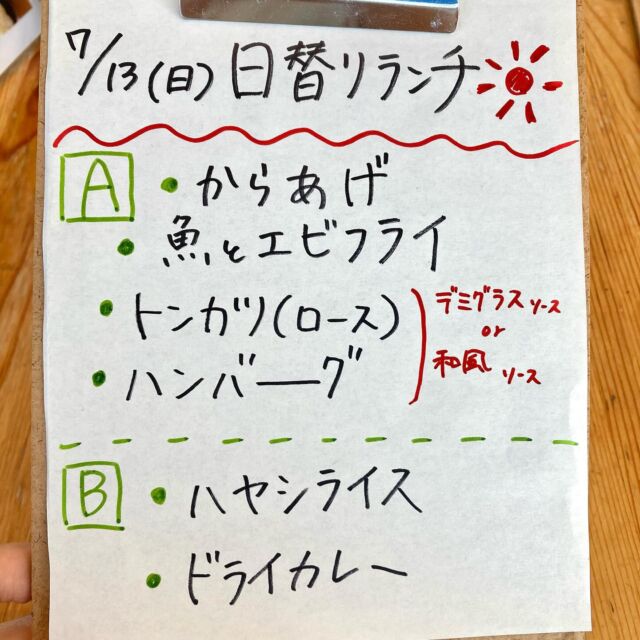 7/13(日) 日替りランチ
A ・からあげ
・魚とエビフライ
・トンカツ(ロース)
・ハンバーグ
デミグラスソース
or
和風ソース
B ・ハヤシライス
・ドライカレー